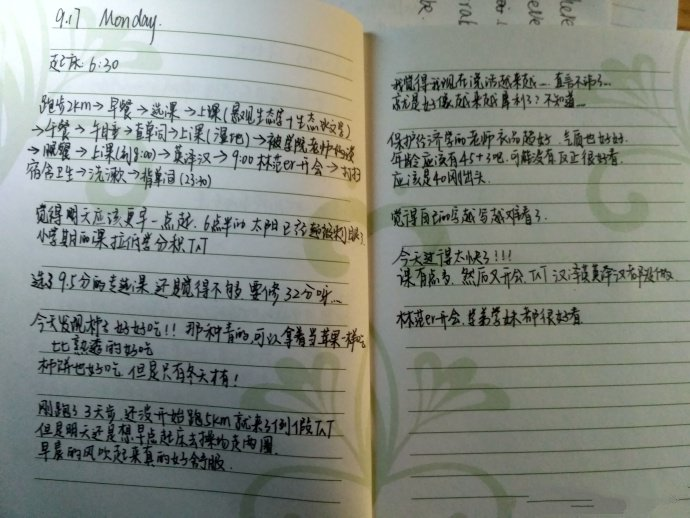 9.17 Monday.
起床 6:30
跑步2km→早餐→选课→上课(景观生态学+生态水文学)
→午餐→午睡→背单词→上课(湿地)→被学院老师
→晚餐→上课(到8:00)→英译汉→9:00 林范er开会→打扫
宿舍卫生→洗漱→背单词(23:30)
觉得明天应该更早一点起,6点半的太阳已经刺眼了
小学期的课拉低学分积T^T
选了9.5分的专选课 还是觉得不够 要修32分呀…
今天发现柿子好好吃!! 那种青的,可以拿着当苹果一样吃
比熟透的好吃
柿饼也好吃 但是只有冬天才有!
刚跑了3天步 还没开始跑5km 就来了例假T^T
但是明天还是想早点起床去操场走两圈
早晨的风吹起来真的好舒服
我觉得我现在说话越来越……直言不讳了…
或者是好像越来越犀利了?不知道…
保护经济学的老师衣品超好,气质也好好.
年龄应该有45+了吧,可能没有 反正很好看.
应该是40刚出头.
觉得自己的字越写越难看了.
今天过得太快了!!!
课有点多,然后又开会,T^T 汉译英英译汉都没做
林范er开会,学弟学妹都很好看